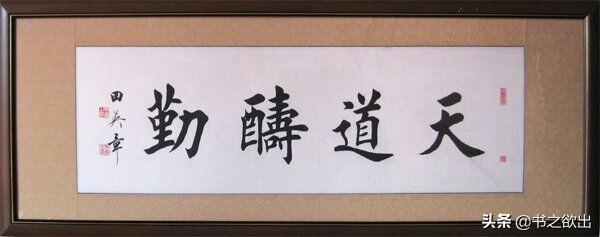 天道醻勤
田英章
头条 @书之欲出